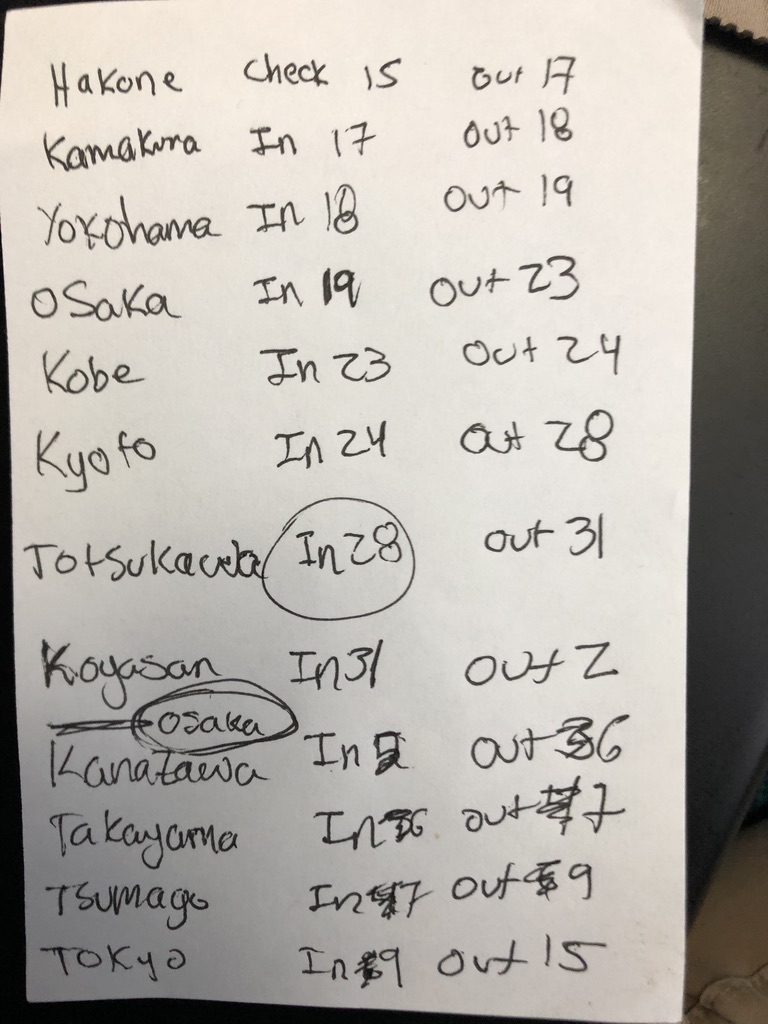 Hakone Check 15 out 17
Kamakura In 17 out 18
Yokohama In 18 out 19
Osaka In 19 out 23
Kobe In 23 out 24
Kyoto In 24 out 28
Totsukawa In 28 out 31
Koyasan In 31 out 2
Osaka
Kanazawa In out 6
Takayama In 6 out 7
Tsumago In 7 out 9
Tokyo In 9 out 15